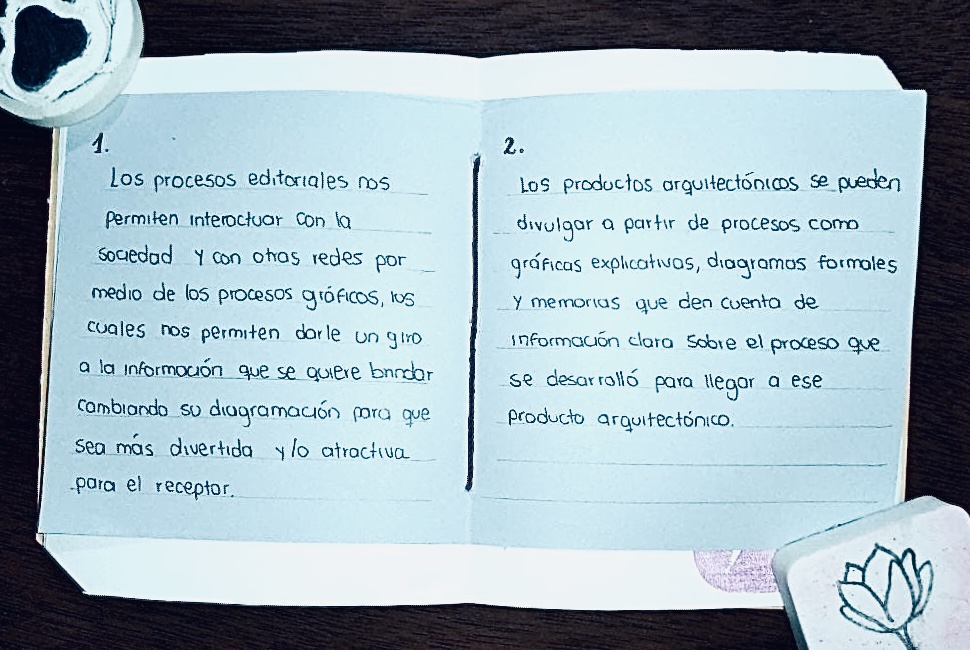 1.
Los procesos editoriales nos
permiten interactuar con la
sociedad y con otras redes por
medio de los procesos gráficos, los
cuales nos permiten darle un giro
a la información que se quiere brindar
cambiando su diagramación para que
sea más divertida y/o atractiva
para el receptor.
2.
Los productos arquitectónicos se pueden
divulgar a partir de procesos como
gráficas explicativas, diagramas formales
y memorias que den cuenta de
información clara sobre el proceso que
se desarrolló para llegar a ese
producto arquitectónico.